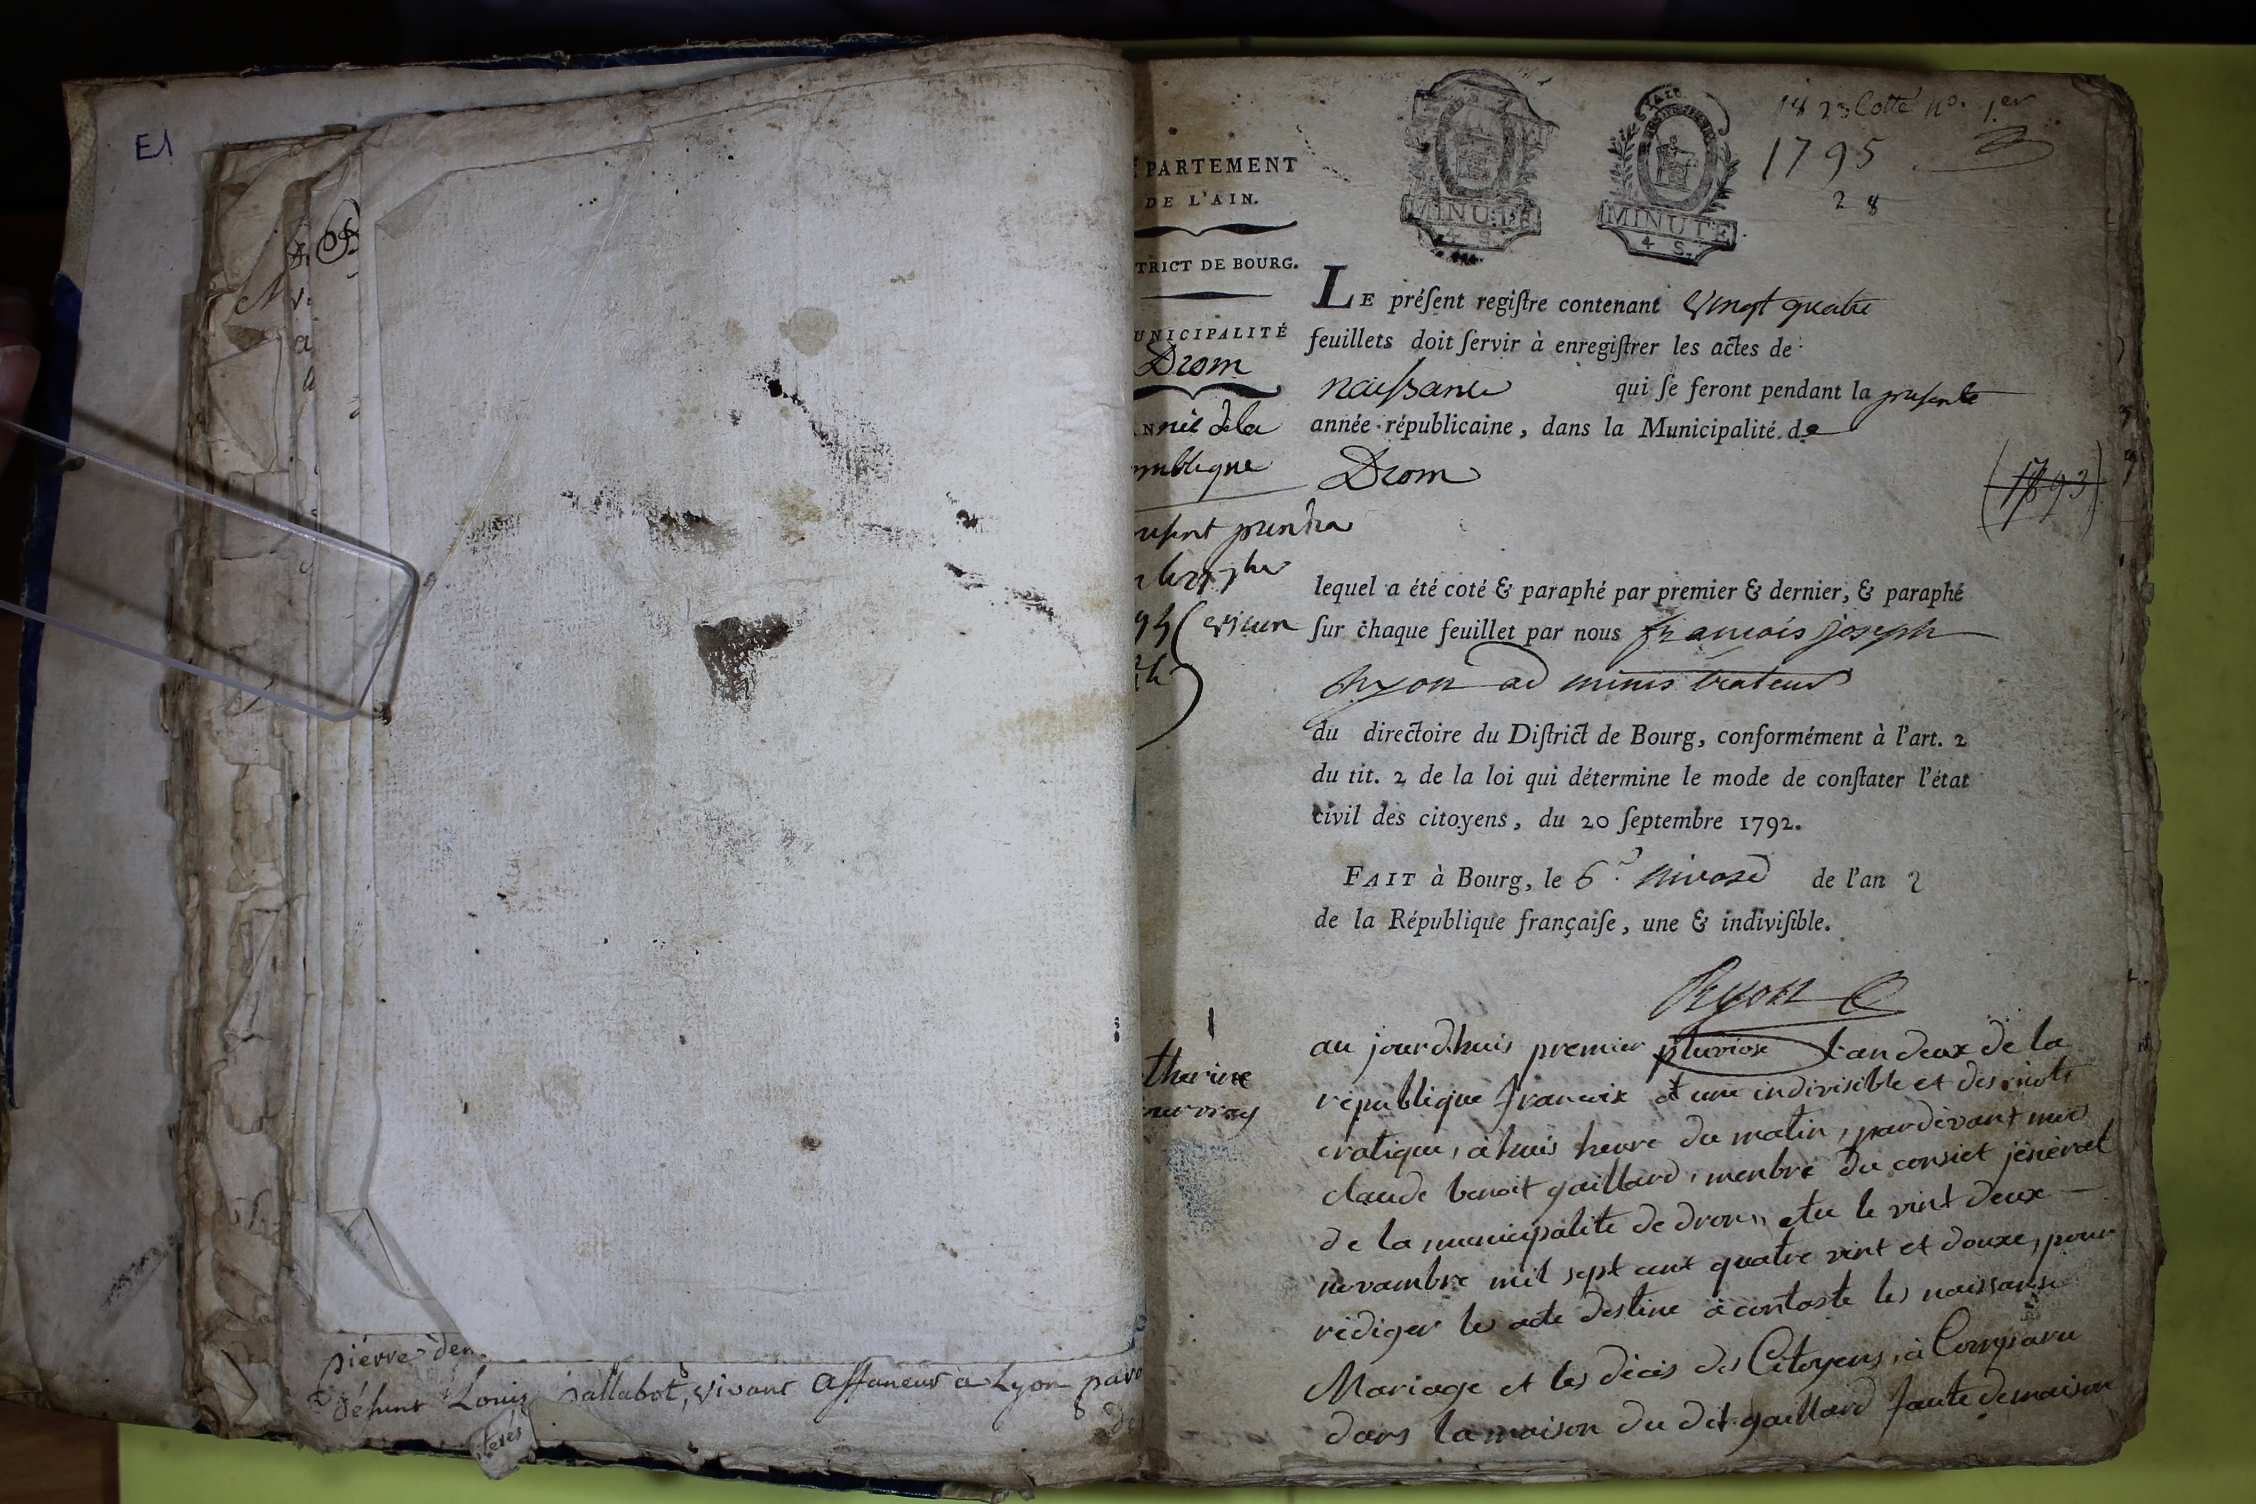 E1
pierre
défunt Louis Sallabot, vivant affaneur a Lyon
1823 Cotte no. 1er
1795
28
MINUTE
4 S.
MINUTE
4 S.
PARTEMENT
DE L'AIN.
TRICT DE BOURG.
UNICIPALITÉ
Drom
née de la
ublique
sent prendra
LE préſent regiſtre contenant vingt quatre
feuillets doit ſervir à enregiſtrer les actes de
naissance qui ſe feront pendant la presente
année républicaine, dans la Municipalité de
Drom
(1793)
lequel a été coté & paraphé par premier & dernier, & paraphé
ſur chaque feuillet par nous francois joseph
Ryon administrateur
du directoire du Diſtrict de Bourg, conformément à l'art. 2
du tit. 2 de la loi qui détermine le mode de conſtater l'état
civil des citoyens, du 20 ſeptembre 1792.
FAIT à Bourg, le 6. nivose de l'an 2
de la République françaiſe, une & indiviſible.
Ryon
1
therine
au jourdhuis premier pluviose l'an deux de la
république francoix et une indivisible et des mots
cratique, à huis heure du matin, pardevant moi
claude benoit gaillard, menbre du consiet jénéral
de la municipalite de drom, elu le vint deux
novambre mil sept cent quatre vint et douxe, pour
rédiger les acte destine a contaste les naissance
Mariage et les décés des Citoyens, à Comparu
dans la maison du dit gaillard faute de maison